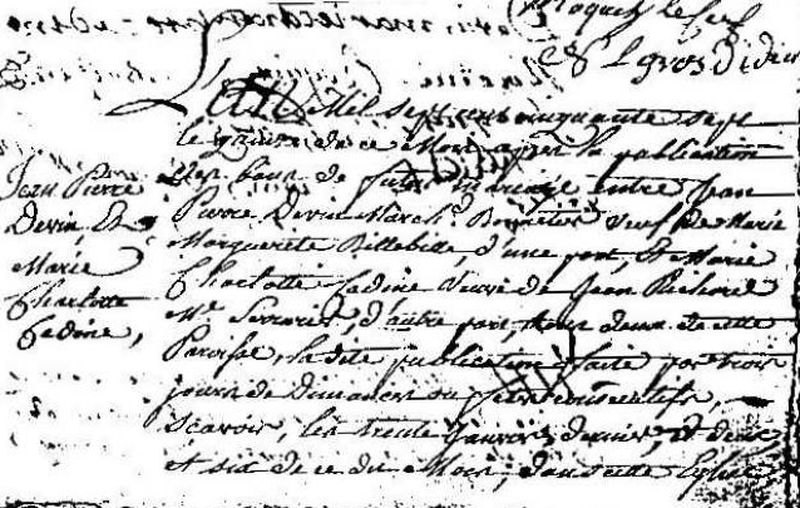 le gros didier
L'an Mil sept cens cinquante sept
le quinze de ce Mois, apres la publication
des bans de futur mariage entre Jean
Pierre Devin March.d Bonnetier veuf de Marie
Marguerite Billebille, d'une part, Et Marie
Charlotte Cadine veuve de Jean Richard
M.e Serrurier, d'autre part, tous deux de cette
Paroisse, la dite publication faite par trois
jours de Dimanches ou festes consecutifs,
scavoir, les trente Janvier dernier, et deux
et six de ce dit Mois, dans cette Eglise
Jean Pierre
Devin, Et
Marie
Charlotte
Cadine,